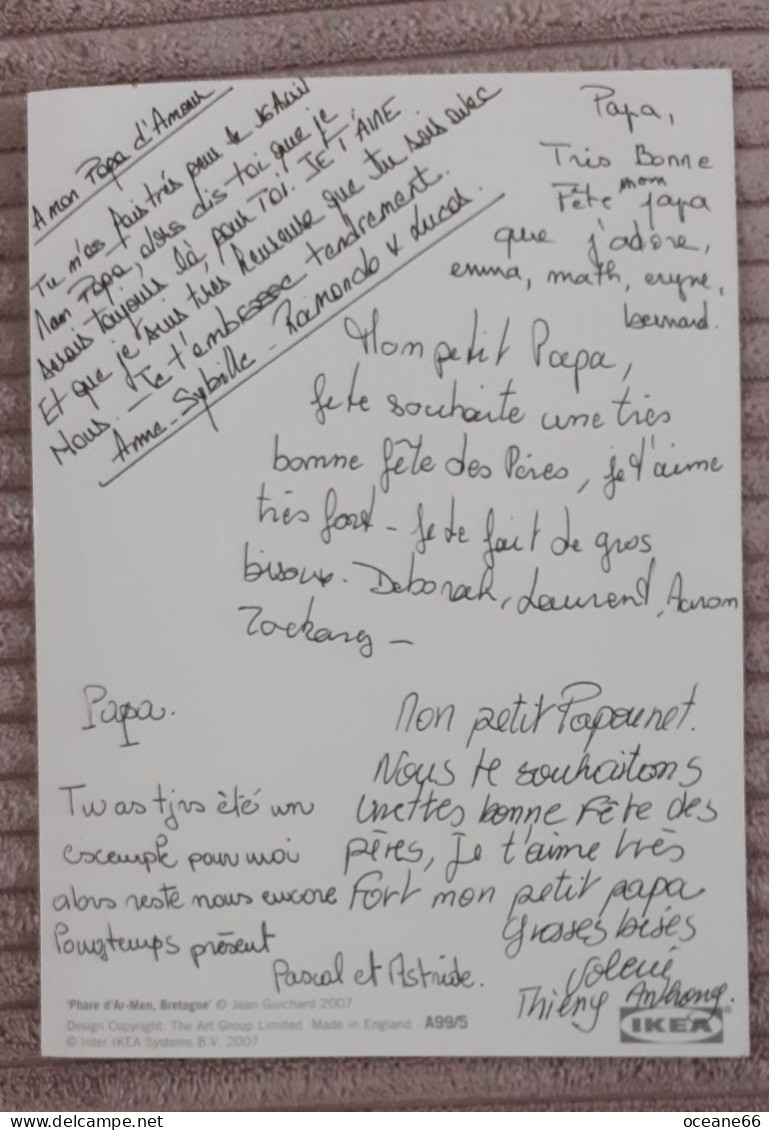 A mon Papa d'Amour
Tu m'as fais très peur le 16 Avril
Mon Papa, alors dis toi que je
serais toujours là, pour TOI. JE T'AIME
Et que je suis très heureuse que tu sois avec
Nous. - Je t'embrasse tendrement.
Anne-Sybille - Raimondo & Lucas.
Papa,
Très Bonne
Fête mon papa
que j'adore,
emma, math,
bernard.
Mon petit Papa,
je te souhaite une très
bonne fête des Pères, je t'aime
très fort - je te fait de gros
bisous. Deborah, Laurent, Aaron
Zackary -
Papa.
Tu as tjrs été un
exemple pour moi
alors reste nous encore
longtemps présent
Pascal et Astride.
Mon petit Papounet.
Nous te souhaitons
une très bonne Fête des
pères, je t'aime très
Fort mon petit papa
Grosses bises
Thierry Anthony.
'Phare d'Ar-Men, Bretagne' © Jean Guichard 2007
Design Copyright: The Art Group Limited. Made in England. A99/5
© Inter IKEA Systems B.V. 2007
IKEA
oceane66